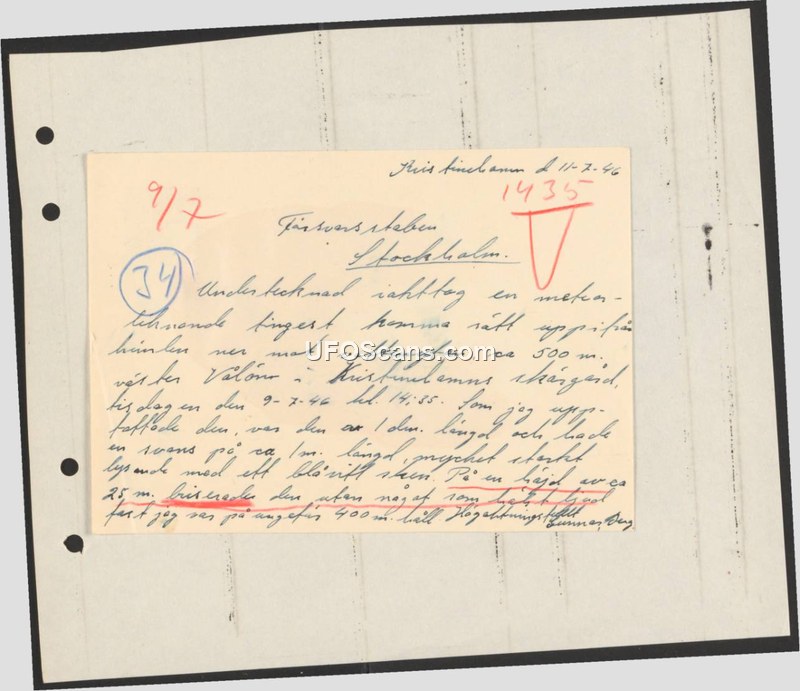 Kristinehamn d 11-7-46
9/7
1435
Försvarsstaben
Stockholm.
34
Undertecknad iakttog en meteor-
liknande tingest komma rätt uppifrån
himlen ner mot
UFOScans.com
ca 500 m.
väster Vålön i Kristinehamns skärgård,
tisdagen den 9-7-46 kl. 14,35. Som jag upp-
fattade den, var den ca 1 dm. längd och hade
en svans på ca 1 m. längd, mycket starkt
lysande med ett blåvitt sken. På en höjd av ca
25 m. briserade den utan något som helst ljud
fast jag var på ungefär 400 m. håll Högaktningsfullt
Gunnar Berg